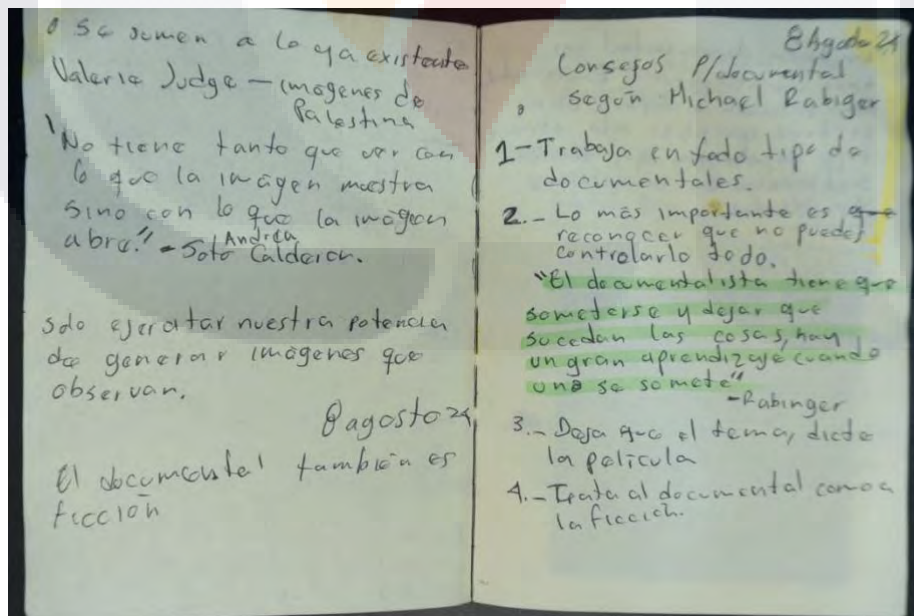 o se sumen a lo ya existente
Valerie Judge - imágenes de
Palestina
"No tiene tanto que ver con
lo que la imágen muestra
sino con lo que la imágen
abre." - Andrea
Soto Calderon.
solo ejercitar nuestra potencia
de generar imágenes que
observan.
8 agosto 24
El documental también es
ficción
8 Agosto 24
Consejos P/documental
según Michael Rabiger
1- Trabaja en todo tipo de
documentales.
2.- Lo más importante es que
reconocer que no puedes
controlarlo todo.
"El documentalista tiene que
someterse y dejar que
sucedan las cosas, hay
un gran aprendizaje cuando
uno se somete"
-Rabinger
3.- Deja que el tema, dicte
la película
4.- Trata al documental como a
la ficción.